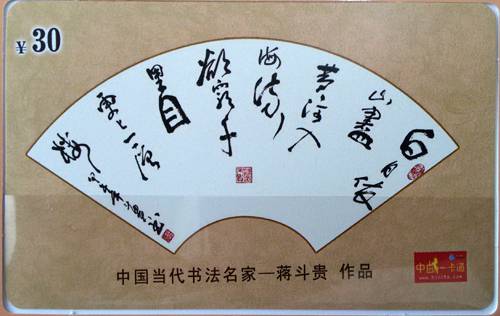 ¥30
白日依
山盡
黄河入
海流
欲窮千
里目
更上一層
樓
中国当代书法名家—蒋斗贵 作品
一卡通